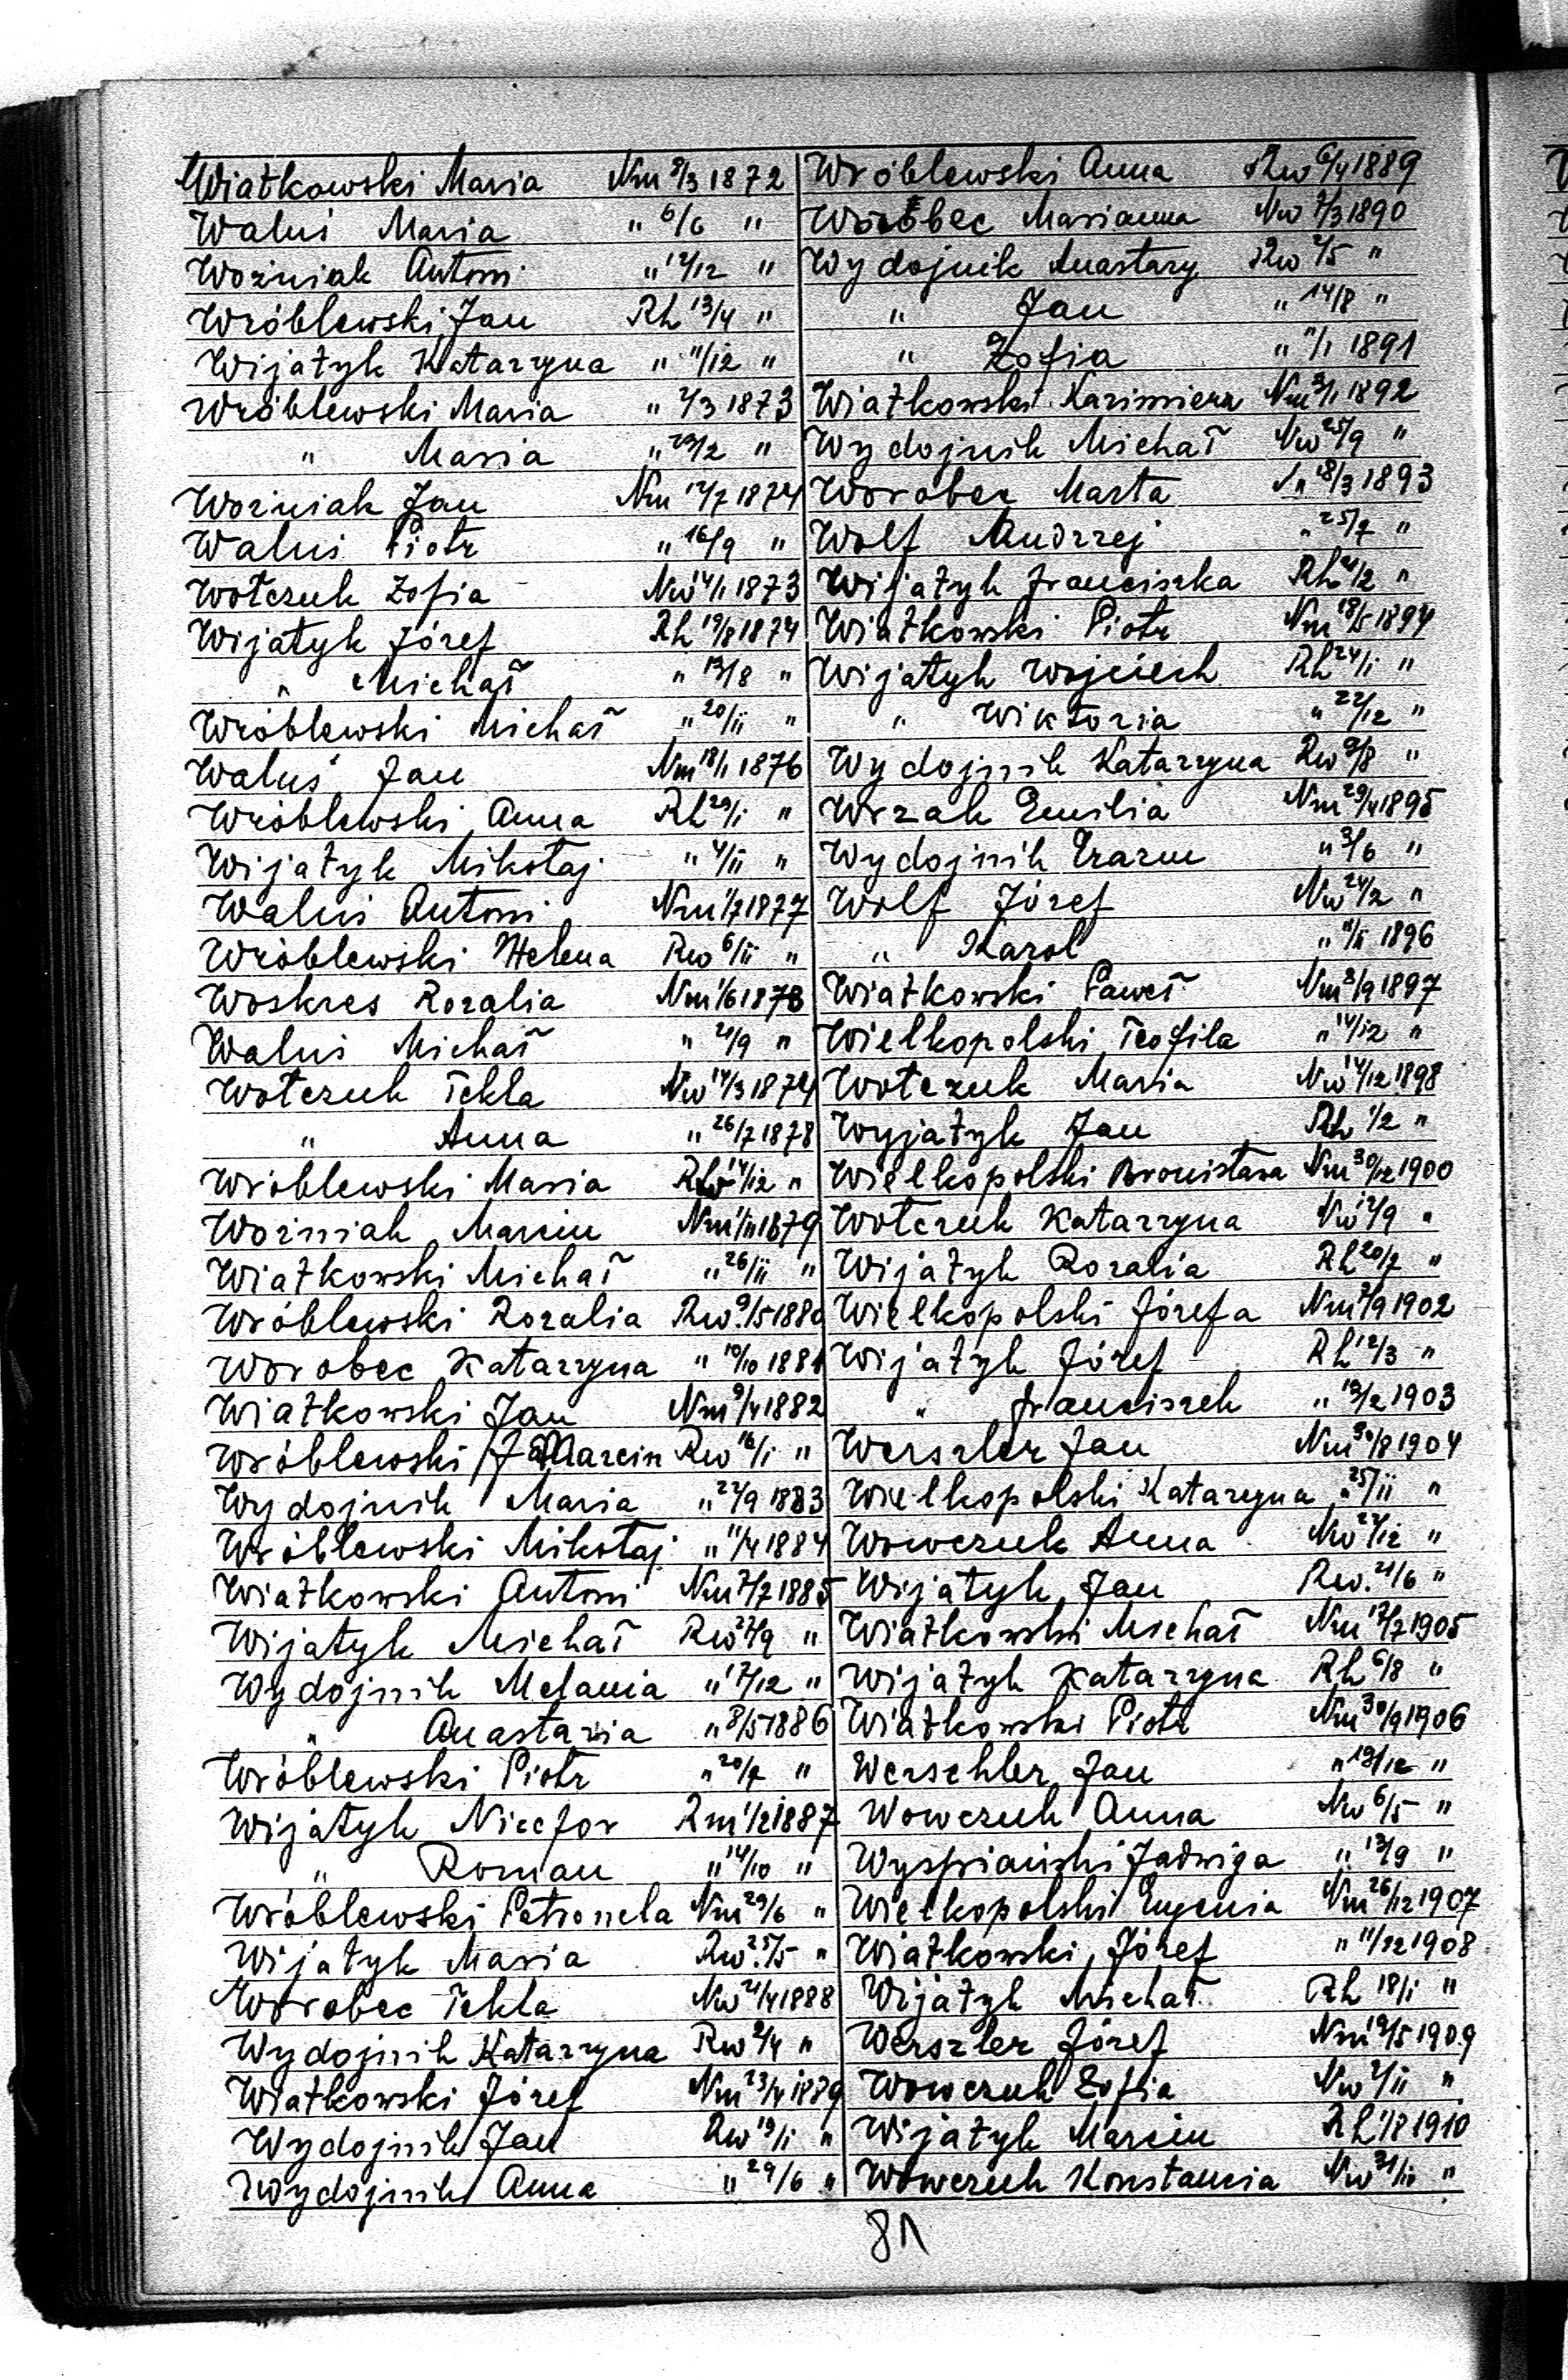 Wiatkowski Maria Nm 8/3 1872
Waluś Maria " 6/6 "
Woźniak Antoni " 12/12 "
Wróblewski Jan Rh 13/4 "
Wijatyk Katarzyna " 11/12 "
Wróblewski Maria " 2/3 1873
" Maria " 23/2 "
Woźniak Jan Nm 12/7 1874
Waluś Piotr " 16/9 "
Wołczuk Zofia Nw 14/1 1873
Wijatyk Józef Rh 19/8 1874
" Michał " 13/8 "
Wróblewski Michał " 20/11 "
Waluś Jan Nm 18/1 1876
Wróblewski Anna Rh 29/1 "
Wijatyk Mikołaj " 4/11 "
Waluś Antoni Nm 1/7 1877
Wróblewski Helena Rw 6/11 "
Woskres Rozalia Nm 1/6 1878
Waluś Michał " 21/9 "
Wołczuk Tekla Nw 14/3 1874
" Anna " 26/7 1878
Wróblewski Maria Rw 14/12 "
Woźniak Marcin Nm 1/11 1879
Wiatkowski Michał " 26/11 "
Wróblewski Rozalia Rw. 9/5 1880
Worobec Katarzyna " 10/10 1881
Wiatkowski Jan Nm 9/4 1882
Wróblewski Marcin Rw 16/1 "
Wydojnik Maria " 22/9 1883
Wróblewski Mikołaj " 11/4 1884
Wiatkowski Antoni Nm 7/7 1885
Wijatyk Michał Rw 27/9 "
Wydojnik Melania " 17/12 "
" Anastazia " 8/5 1886
Wróblewski Piotr " 20/7 "
Wijatyk Nicefor Rm 1/2 1887
" Roman " 14/10 "
Wróblewski Petronela Nm 29/6 "
Wijatyk Maria Rw. 25/5 "
Worobec Tekla Nw 21/4 1888
Wydojnik Katarzyna Rw 2/4 "
Wiatkowski Józef Nm 23/4 1889
Wydojnik Jan Rw 19/1 "
Wydojnik Anna " 29/6 "
Wróblewski Anna Rw 6/4 1889
Worobec Marianna Nw 7/3 1890
Wydojnik Anastazy Rw 2/5 "
" Jan " 14/8 "
" Zofia " 11/1 1891
Wiatkowski Kazimiera Nm 3/1 1892
Wydojnik Michał Nw 25/9 "
Worobec Marta " 18/3 1893
Wolf Andrzej " 25/7 "
Wijatyk Franciszka Rh 4/2 "
Wiatkowski Piotr Nm 18/5 1894
Wijatyk Wojciech Rh 24/1 "
" Wiktoria " 22/12 "
Wydojnik Katarzyna Rw 9/8 "
Wrzak Emilia Nm 29/4 1895
Wydojnik Erazm " 3/6 "
Wolf Józef Nw 24/2 "
" Karol " 11/11 1896
Wiatkowski Paweł Nm 3/9 1897
Wielkopolski Teofila " 14/12 "
Wołczuk Maria Nw 14/12 1898
Wyjatyk Jan Rh 1/2 "
Wielkopolski Bronisława Nm 30/12 1900
Wołczuk Katarzyna Nw 12/9 "
Wijatyk Rozalia Rh 20/7 "
Wielkopolski Józefa Nm 7/9 1902
Wijatyk Józef Rh 12/3 "
" Franciszek " 13/2 1903
Werszler Jan Nm 30/8 1904
Wielkopolski Katarzyna " 25/11 "
Wowczuk Anna Nw 22/12 "
Wijatyk Jan Rw. 21/6 "
Wiatkowski Michał Nm 17/7 1905
Wijatyk Katarzyna Rh 6/8 "
Wiatkowski Piotr Nm 30/9 1906
Werschler Jan " 19/12 "
Wowczuk Anna Nw 6/5 "
Wyspiański Jadwiga " 13/9 "
Wielkopolski Eugenia Nm 26/12 1907
Wiatkowski Józef " 11/12 1908
Wijatyk Michał Rh 18/1 "
Werszler Józef Nm 19/5 1909
Wowczuk Zofia Nw 2/11 "
Wijatyk Marcin Rh 1/8 1910
Wowczuk Konstancia Nw 31/10 "
81